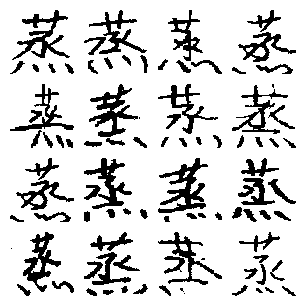 蒸蒸蒸蒸
蒸蒸蒸蒸
蒸蒸蒸蒸
蒸蒸蒸蒸